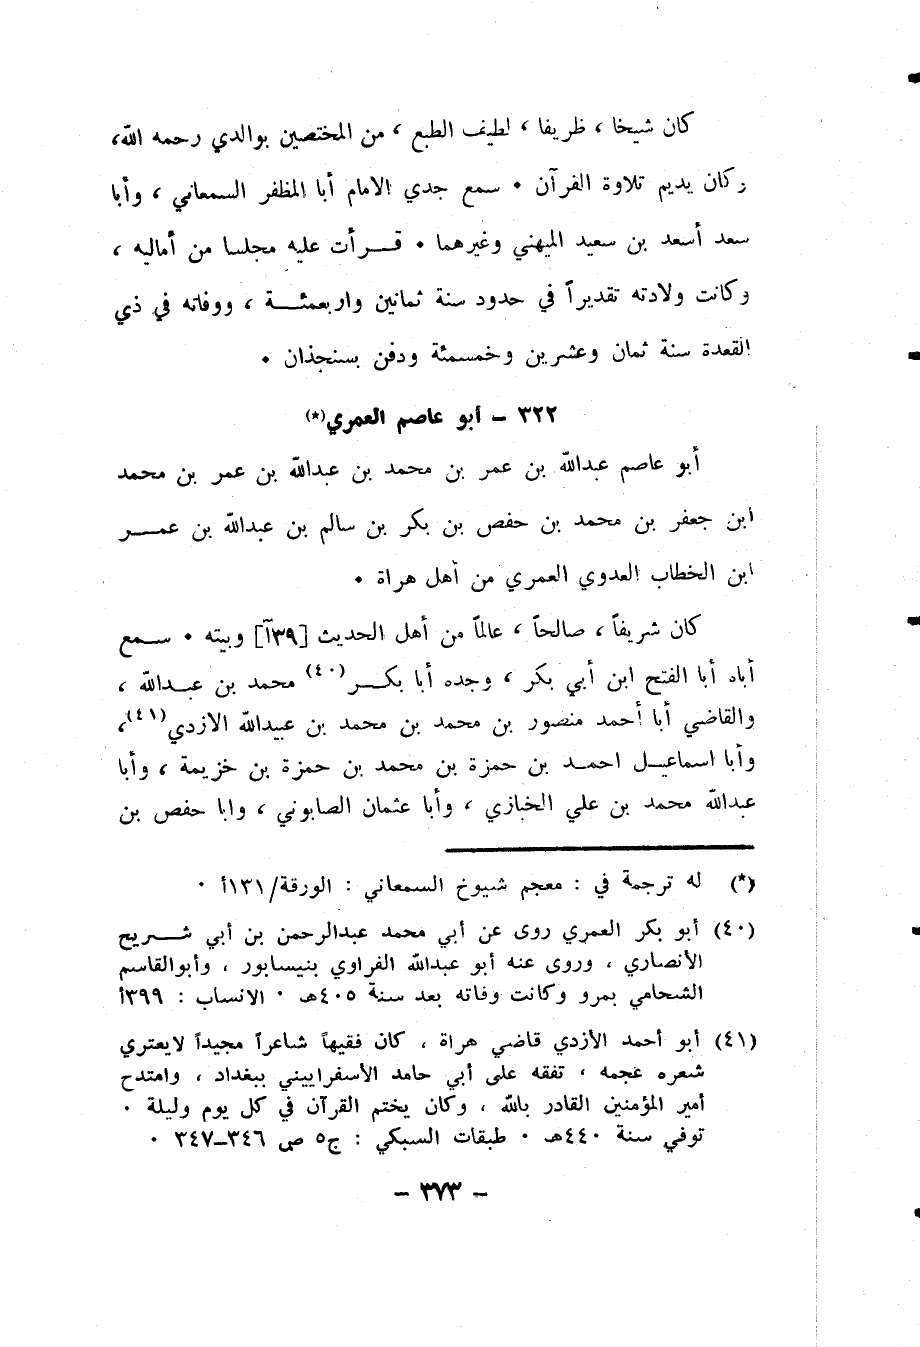 كان شيخا ، ظريفا ، لطيف الطبع ، من المختصين بوالدي رحمه الله،
وكان يديم تلاوة القرآن . سمع جدي الامام أبا المظفر السمعاني ، وأبا
سعد أسعد بن سعيد الميهني وغيرهما . قــرأت عليه مجلسا من أماليه ،
وكانت ولادته تقديراً في حدود سنة ثمانين واربعمئــة ، ووفاته في ذي
القعدة سنة ثمان وعشرين وخمسمئة ودفن بسنجذان .
٣٢٢ – أبو عاصم العمري(*)
أبو عاصم عبدالله بن عمر بن محمد بن عبدالله بن عمر بن محمد
ابن جعفر بن محمد بن حفص بن بكر بن سالم بن عبدالله بن عمــر
ابن الخطاب العدوي العمري من أهل هراة .
كان شريفاً ، صالحاً ، عالماً من أهل الحديث [٣٩آ] وبيته . ســمع
أباه أبا الفتح ابن أبي بكر ، وجده أبا بكــر(٤٠) محمد بن عبــدالله ،
والقاضي أبا أحمد منصور بن محمد بن محمد بن عبيدالله الازدي(٤١)،
وأبا اسماعيــل احمــد بن حمزة بن محمد بن حمزة بن خزيمة ، وأبا
عبدالله محمد بن علي الخبازي ، وأبا عثمان الصابوني ، وابا حفص بن
(*) له ترجمة في : معجم شيوخ السمعاني : الورقة/١٣١أ .
(٤٠) أبو بكر العمري روى عن أبي محمد عبدالرحمن بن أبي شــريح
الأنصاري ، وروى عنه أبو عبدالله الفراوي بنيسابور ، وأبوالقاسم
الشحامي بمرو وكانت وفاته بعد سنة ٤٠٥هـ . الانساب : ٣٩٩أ
(٤١) أبو أحمد الأزدي قاضي هراة ، كان فقيهاً شاعراً مجيداً لايعتري
شعره عجمه ، تفقه على أبي حامد الأسفراييني ببغداد ، وامتدح
أمير المؤمنين القادر بالله ، وكان يختم القرآن في كل يوم وليلة .
توفي سنة ٤٤٠هـ . طبقات السبكي : ج٥ ص ٣٤٦–٣٤٧ .
– ٣٧٣ –